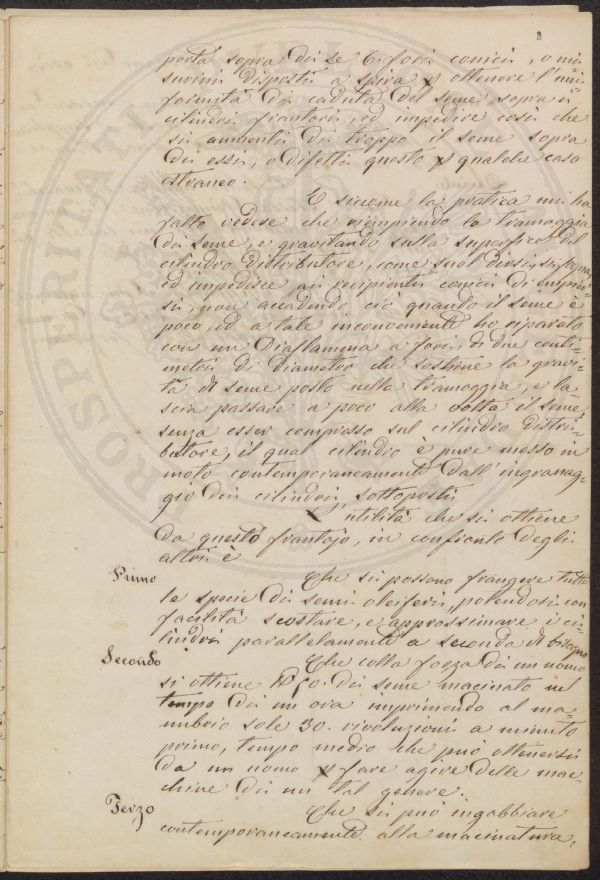 porta sopra di se 6. fori conici, o mi=
surini disposti a spira p ottenere l'uni=
formità di caduta del seme sopra i
cilindri frantori, ed impedire così che
si aumenti di troppo il seme sopra
di essi, o difetti questo p qualche caso
estraneo.
E siccome la pratica mi ha
fatto vedere che riempiendo la tramoggia
di seme, e gravitando sulla superficie del
cilindro distributore, come suol darsi, si
ed impedisce ai recipienti conici di empir=
si, non accadendo ciò quando il seme è
poco, ed a tale inconveniente ho riparato
con un Diaflamma a fori, di due centi=
metri di diametro che sostiene la gravi=
tà di seme posto nella tramoggia, e la=
scia passare a poco alla volta il seme,
senza esser compresso sul cilindro distri=
butore, il qual cilindro è pure messo in
moto contemporaneamente dall'ingranag=
gio dei cilindri sottoposti
L'utilità che si ottiene
da questo frantojo, in confronto degli
altri è
Primo Che si possono frangere tutte
le specie di semi oleiferi, potendosi con
facilità scostare, e approssimare i ci=
lindri parallelamente a seconda di bisogno
Secondo Che colla forza di un uomo
si ottiene di seme macinato nel
tempo di un ora imprimendo al ma=
nubrio sole 30. rivoluzioni a minuto
primo, tempo medio che può ottenersi
da un uomo p fare agire delle mac=
chine di un tal genere.
Terzo Che si può ingabbiare
contemporaneamente alla macinatura,